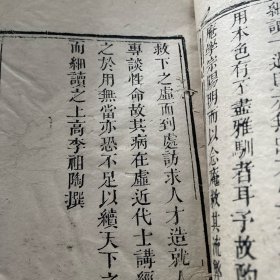 用本色有了盡雅馴者耳予故敵
陽明而以念菴救其流弊
敕下之虛而到處訪求人才造就
專談性命故其病在虛近代士講經
之於用無當亦恐不足以續天下之
而細讀之上高李祖陶撰